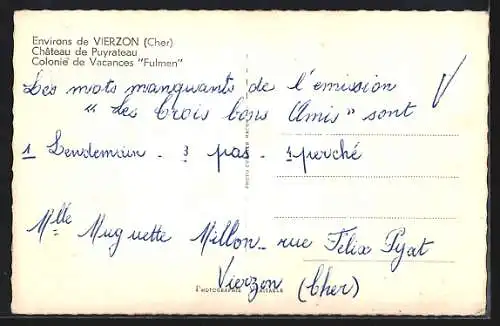 Environs de VIERZON (Cher)
Château de Puyrateau
Colonie de Vacances "Fulmen"
Les mots manquants de l'émission
" les trois bons Amis " sont
1 Lendemain - 3 pas - 4 perché
Mlle Muguette Millon - rue Félix Pyat
Vierzon (Cher)
PHOTOGRAPHIE